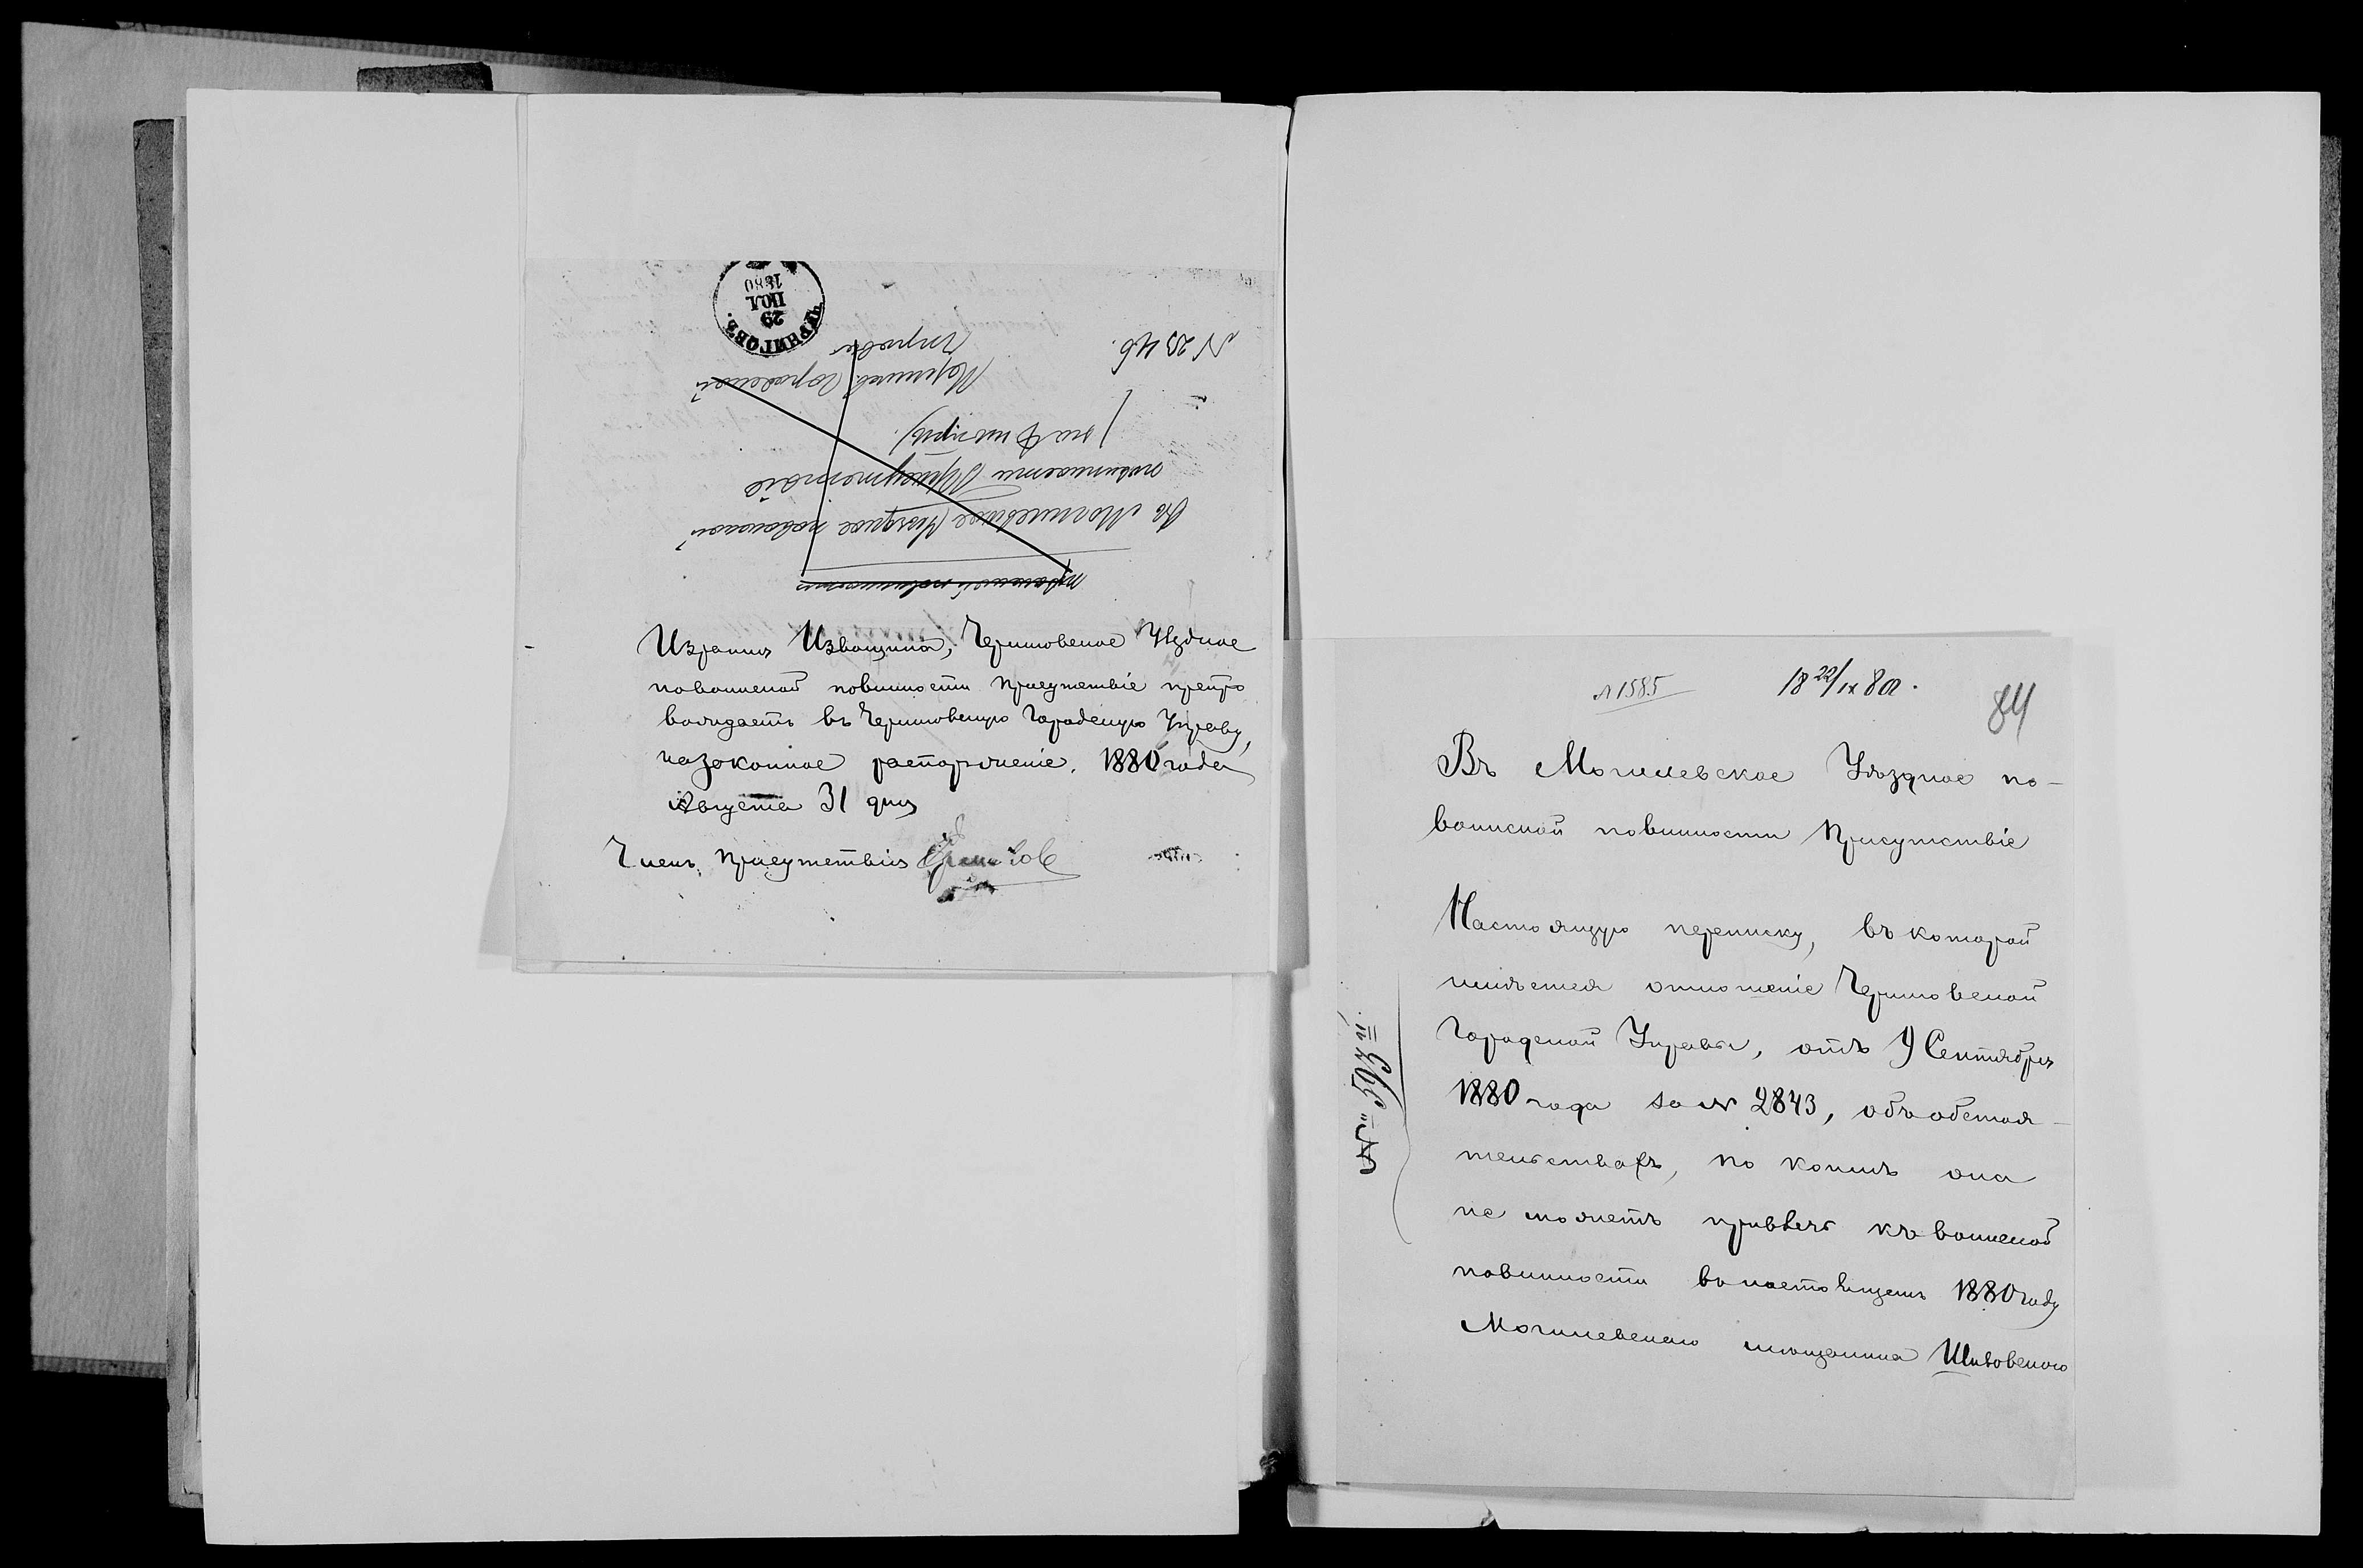 ЧЕРНИГОВЪ.
29
ІЮЛ
1880
№ 2546.
Чернигов. Городской
Управы
(на № [...])
повинности Присутствіе
Въ Могилевское Уѣздное по воинской
по воинской повинности
Израиля Извощика, Черниговское Уѣздное
по воинской повинности Присутствіе препро
вождаетъ въ Черниговскую Городскую Управу,
на законное распоряженіе. 1880 года
Августа 31 дня
Членъ Присутствія
№ 1585
18 22/IX 80.
84
Въ Могилевское Уѣздное по-
воинской повинности Присутствіе
Настоящую переписку, въ которой
имѣется отношеніе Черниговской
Городской Управы, отъ 9 Сентября
1880 года за № 2843, объ обстоя-
тельствахъ, по коимъ она
не можетъ привлечь къ воинской
повинности въ настоящемъ 1880 году
Могилевскаго мѣщанина Шиховскаго